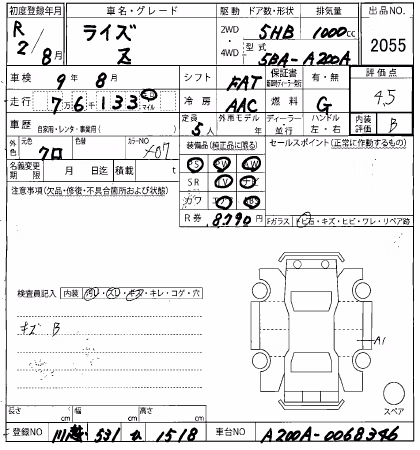 初度登録年月 車名・グレード 駆動 ドア数・形状 排気量 出品NO.
R2/8月 ライズ Z 2WD 4WD 5HB 1000cc 2055
型式 5BA-A200A
車検 9年8月 シフト FAT 保証書 有・無 評価点 4.5
走行 7万6千133 キロ マイル 冷房 AAC 燃料 G
車歴 自家用・レンタ・事業用( ) 定員 5人 外車モデル 年 ディーラー 並行 ハンドル 左・右 内装評価 B
外色 元色 クロ 色替 カラーNO X07 装備品(純正品に限る) セールスポイント(正常に作動するもの)
名義変更期限 月 日迄 積載 t PS PW AW
注意事項(欠品・修復・不具合箇所および状態) SR TV ナビ
カワ エアB ABS
R券 8,790円 Fガラス トビ石・キズ・ヒビ・ワレ・リペア跡
検査員記入 内装 汚レ・スレ・キズ・キレ・コゲ・穴
キズ B
A1
スペア
長さ cm 幅 cm 高さ cm
登録NO 531 1518 車台NO A200A-0068346